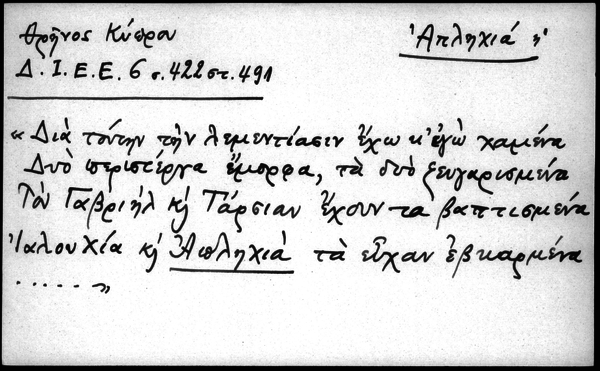 Θρῆνος Κύπρου
Ἀπληκιά ἡ
Δ. Ι. Ε. Ε. 6 σ. 422 στ. 491
« Διὰ τούτην τὴν λεμεντίασιν ἔχω κ' ἐγὼ χαμένα
Δυὸ περιστέργα ἔμορφα, τὰ δυὸ ζευγαρισμένα
Τὸν Γαβριήλ κ] Τάρσιαν ἔχουν τα βαπτισμένα
Ἰαλουχία κ] Ἀπληκιά τὰ εἶχαν ἐβκαρμένα
...... »